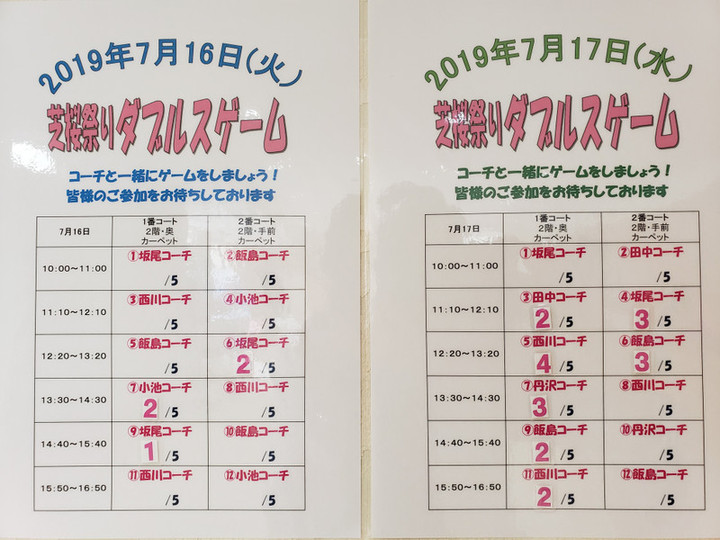 2019年7月16日(火)
芝桜祭りダブルスゲーム
コーチと一緒にゲームをしましょう!
皆様のご参加をお待ちしております
7月16日
1番コート
2階・奥
カーペット
2番コート
2階・手前
カーペット
10:00~11:00
①坂尾コーチ
/5
②飯島コーチ
/5
11:10~12:10
③西川コーチ
/5
④小池コーチ
/5
12:20~13:20
⑤飯島コーチ
/5
⑥坂尾コーチ
2 /5
13:30~14:30
⑦小池コーチ
2 /5
⑧西川コーチ
/5
14:40~15:40
⑨坂尾コーチ
1 /5
⑩飯島コーチ
/5
15:50~16:50
⑪西川コーチ
/5
⑫小池コーチ
/5
2019年7月17日(水)
芝桜祭りダブルスゲーム
コーチと一緒にゲームをしましょう!
皆様のご参加をお待ちしております
7月17日
1番コート
2階・奥
カーペット
2番コート
2階・手前
カーペット
10:00~11:00
①坂尾コーチ
/5
②田中コーチ
/5
11:10~12:10
③田中コーチ
2 /5
④坂尾コーチ
3 /5
12:20~13:20
⑤西川コーチ
4 /5
⑥飯島コーチ
3 /5
13:30~14:30
⑦丹沢コーチ
3 /5
⑧西川コーチ
/5
14:40~15:40
⑨飯島コーチ
2 /5
⑩丹沢コーチ
/5
15:50~16:50
⑪西川コーチ
2 /5
⑫飯島コーチ
/5